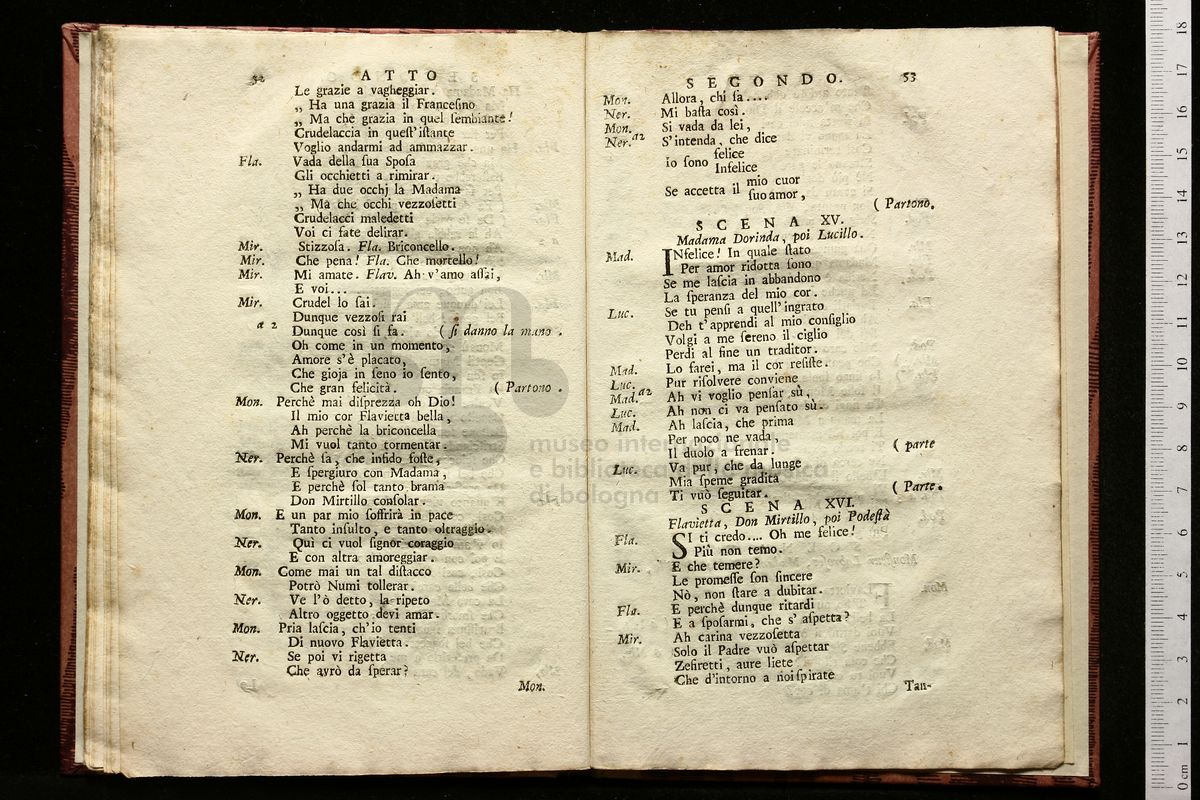 52 ATTO
Le grazie a vagheggiar.
„ Ha una grazia il Franceſino
„ Ma che grazia in quel ſembiante!
Crudelaccia in queſt'iſtante
Voglio andarmi ad ammazzar.
Fla. Vada della ſua Spoſa
Gli occhietti a rimirar.
„ Ha due occhj la Madama
„ Ma che occhi vezzoſetti
Crudelacci maledetti
Voi ci fate delirar.
Mir. Stizzoſa. Fla. Briconcello.
Mir. Che pena! Fla. Che mortello!
Mir. Mi amate. Flav. Ah v'amo aſſai,
E voi...
Mir. Crudel lo ſai.
Dunque vezzoſi rai
a 2 Dunque così ſi fa. ( ſi danno la mano.
Oh come in un momento,
Amore s'è placato,
Che gioja in ſeno io ſento,
Che gran felicità. ( Partono.
Mon. Perchè mai diſprezza oh Dio!
Il mio cor Flavietta bella,
Ah perchè la briconcella
Mi vuol tanto tormentar.
Ner. Perchè ſa, che infido foſte,
E ſpergiuro con Madama,
E perchè ſol tanto brama
Don Mirtillo conſolar.
Mon. E un par mio ſoffrirà in pace
Tanto inſulto, e tanto oltraggio.
Ner. Quì ci vuol ſignor coraggio
E con altra amoreggiar.
Mon. Come mai un tal diſtacco
Potrò Numi tollerar.
Ner. Ve l'ò detto, la ripeto
Altro oggetto devi amar.
Mon. Pria laſcia, ch'io tenti
Di nuovo Flavietta.
Ner. Se poi vi rigetta
Che avrò da ſperar?
Mon.
SECONDO. 53
Mon. Allora, chi ſa....
Ner. Mi baſta così.
Mon. Si vada da lei,
Ner. a2 S'intenda, che dice
felice
Io ſono
Infelice
mio cuor
Se accetta il
ſuo amor,
( Partono.
SCENA XV.
Madama Dorinda, poi Lucillo.
Mad. INfelice! In quale ſtato
Per amor ridotta ſono
Se me laſcia in abbandono
La ſperanza del mio cor.
Luc. Se tu penſi a quell'ingrato
Deh t'apprendi al mio conſiglio
Volgi a me ſereno il ciglio
Perdi al fine un traditor.
Mad. Lo farei, ma il cor reſiſte.
Luc. Pur riſolvere conviene
Mad. a2 Ah vi voglio penſar sù,
Luc. Ah non ci va penſato sù.
Mad. Ah laſcia, che prima
Per poco ne vada,
Il duolo a frenar. ( parte
Luc. Va pur, che da lunge
Mia ſpeme gradita
Ti vuò ſeguitar. ( Parte.
SCENA XVI.
Flavietta, Don Mirtillo, poi Podeſtà
Fla. SI ti credo.... Oh me felice!
Più non temo.
Mir. E che temere?
Le promeſſe ſon ſincere
Nò, non ſtare a dubitar.
Fla. E perchè dunque ritardi
E a ſpoſarmi, che s' aſpetta?
Mir. Ah carina vezzoſetta
Solo il Padre vuò aſpettar
Zefiretti, aure liete
Che d'intorno a noi ſpirate
Tan-
museo internazionale
e biblioteca della musica
di bologna
0 cm 1 2 3 4 5 6 7 8 9 10 11 12 13 14 15 16 17 18